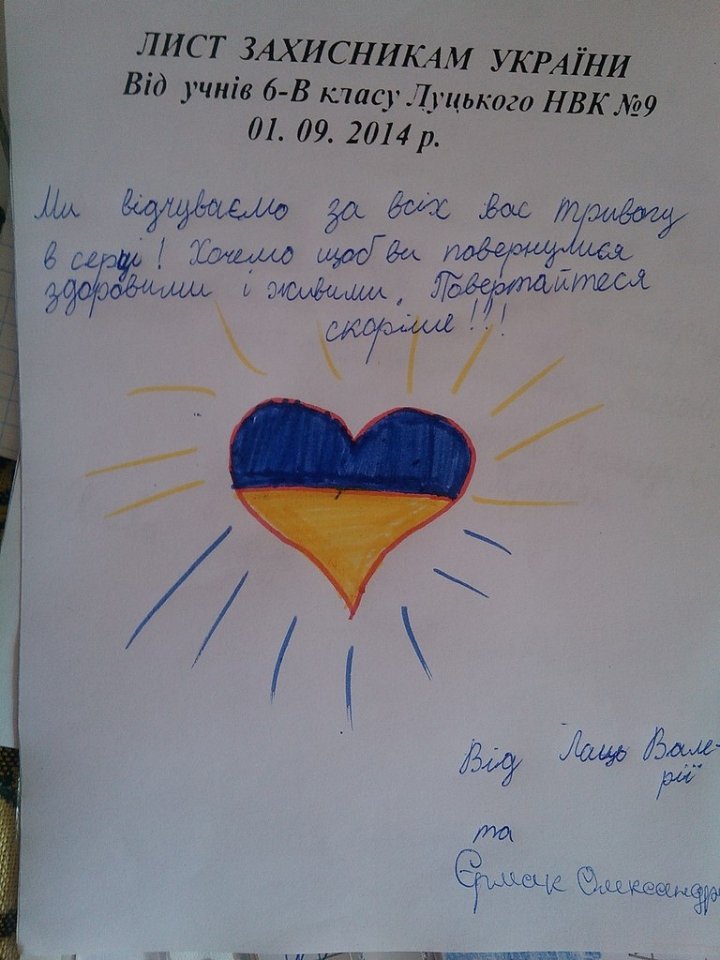 ЛИСТ ЗАХИСНИКАМ УКРАЇНИ
Від учнів 6-В класу Луцького НВК №9
01. 09. 2014 р.
Ми відчуваємо за всіх вас тривогу
в серці! Хочемо щоб ви повернулися
здоровими і живими. Повертайтеся
скоріше!!!
Від Лащь Вале-
рії
та
Єрмак Олександр